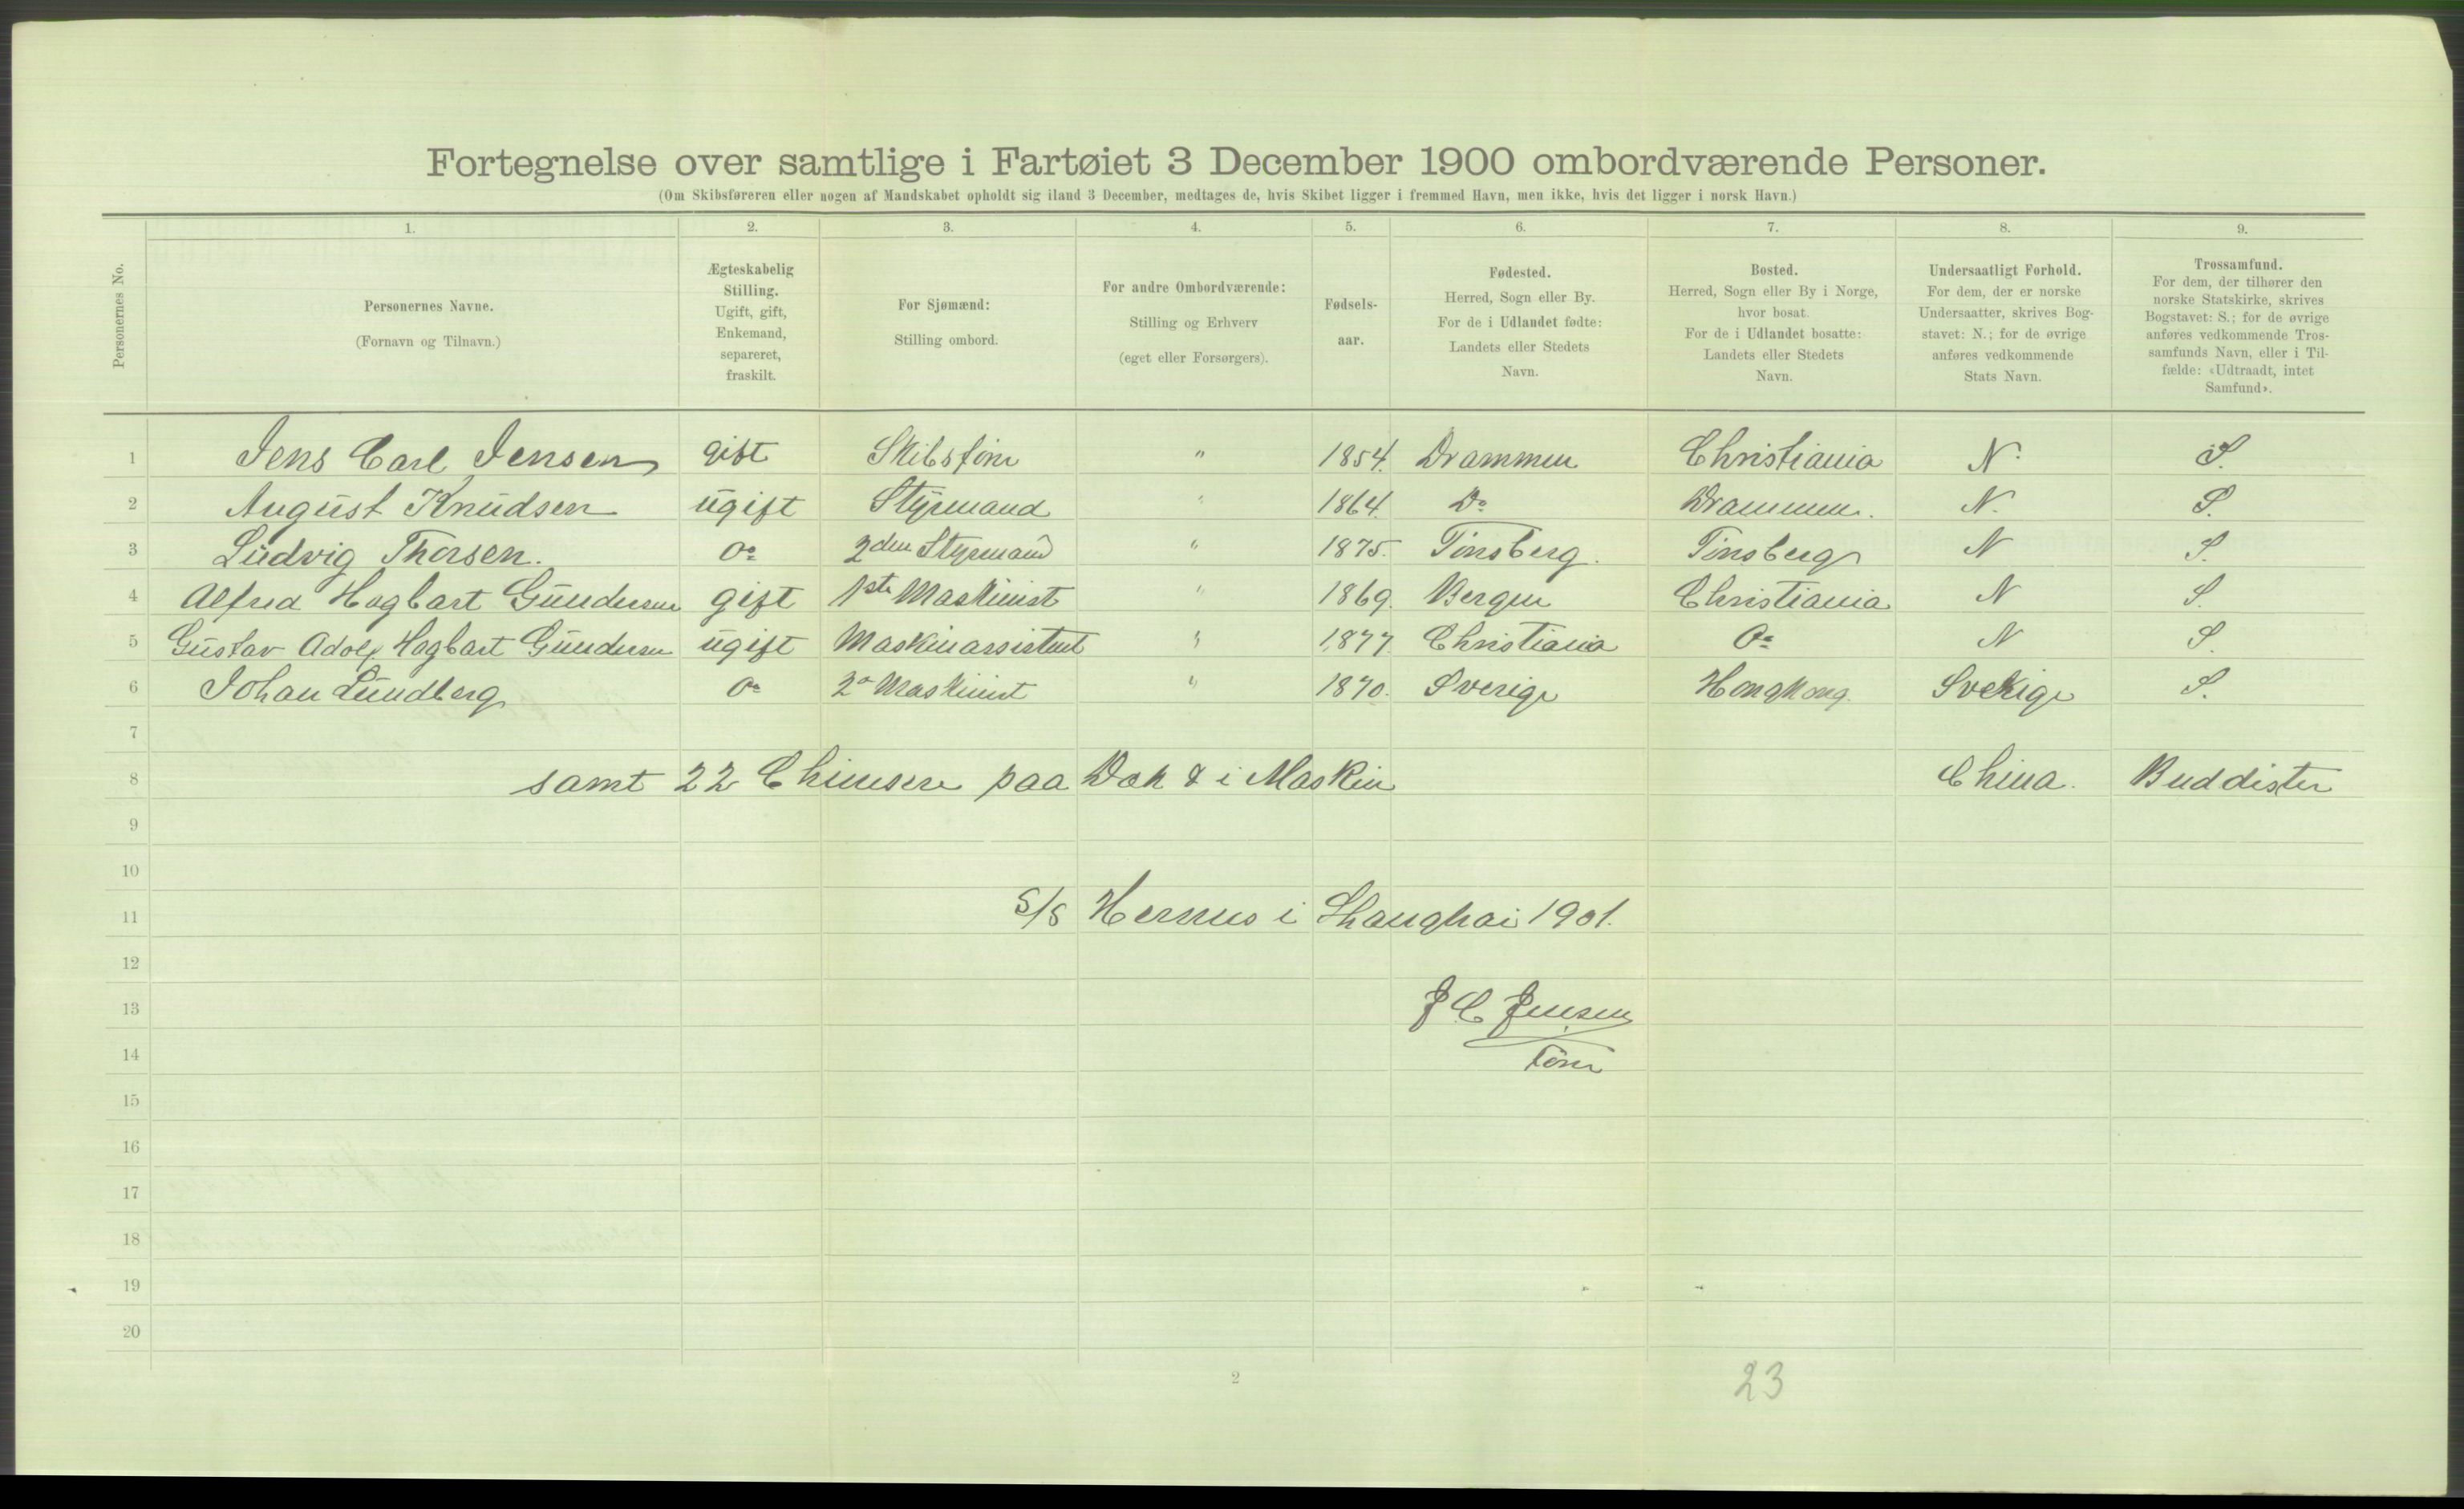 Fortegnelse over samtlige i Fartøiet 3 December 1900 ombordværende Personer.
(Om Skibsføreren eller nogen af Mandskabet opholdt sig iland 3 December, medtages de, hvis Skibet ligger i fremmed Havn, men ikke, hvis det ligger i norsk Havn.)
Personernes No.
1. 2. 3. 4. 5. 6. 7. 8. 9.
Personernes Navne.
(Fornavn og Tilnavn.)
Ægteskabelig
Stilling.
Ugift, gift,
Enkemand,
separeret,
fraskilt.
For Sjømænd:
Stilling ombord.
For andre Ombordværende:
Stilling og Erhverv
(eget eller Forsørgers).
Fødsels-
aar.
Fødested.
Herred, Sogn eller By.
For de i Udlandet fødte:
Landets eller Stedets
Navn.
Bosted.
Herred, Sogn eller By i Norge,
hvor bosat.
For de i Udlandet bosatte:
Landets eller Stedets
Navn.
Undersaatligt Forhold.
For dem, der er norske
Undersaatter, skrives Bog-
stavet: N.; for de øvrige
anføres vedkommende
Stats Navn.
Trossamfund.
For dem, der tilhører den
norske Statskirke, skrives
Bogstavet: S.; for de øvrige
anføres vedkommende Tros-
samfunds Navn, eller i Til-
fælde: «Udtraadt, intet
Samfund».
1 Jens Carl Jensen gift Skibsfører " 1854. Drammen Christiania N. S.
2 August Knudsen ugift Styrmand " 1864. Do Drammen. N. S.
3 Ludvig Thorsen. Do 2den Styrmand " 1875. Tønsberg. Tønsberg N S.
4 Alfred Hagbart Gundersen gift 1ste Maskinist " 1869. Bergen Christiania N S.
5 Gustav Adolf Hagbart Gundersen ugift Maskinassistent " 1877. Christiania Do N S.
6 Johan Lundberg Do 2n Maskinist " 1870. Sverige Hongkong. Sverige S.
7
8 samt 22 Chinesere paa Dæk & i Maskin China. Buddister
9
10
11 S/S Hermes i Shanghai 1901.
12
13 J C Jensen
14 Fører
15
16
17
18
19
20
2
23